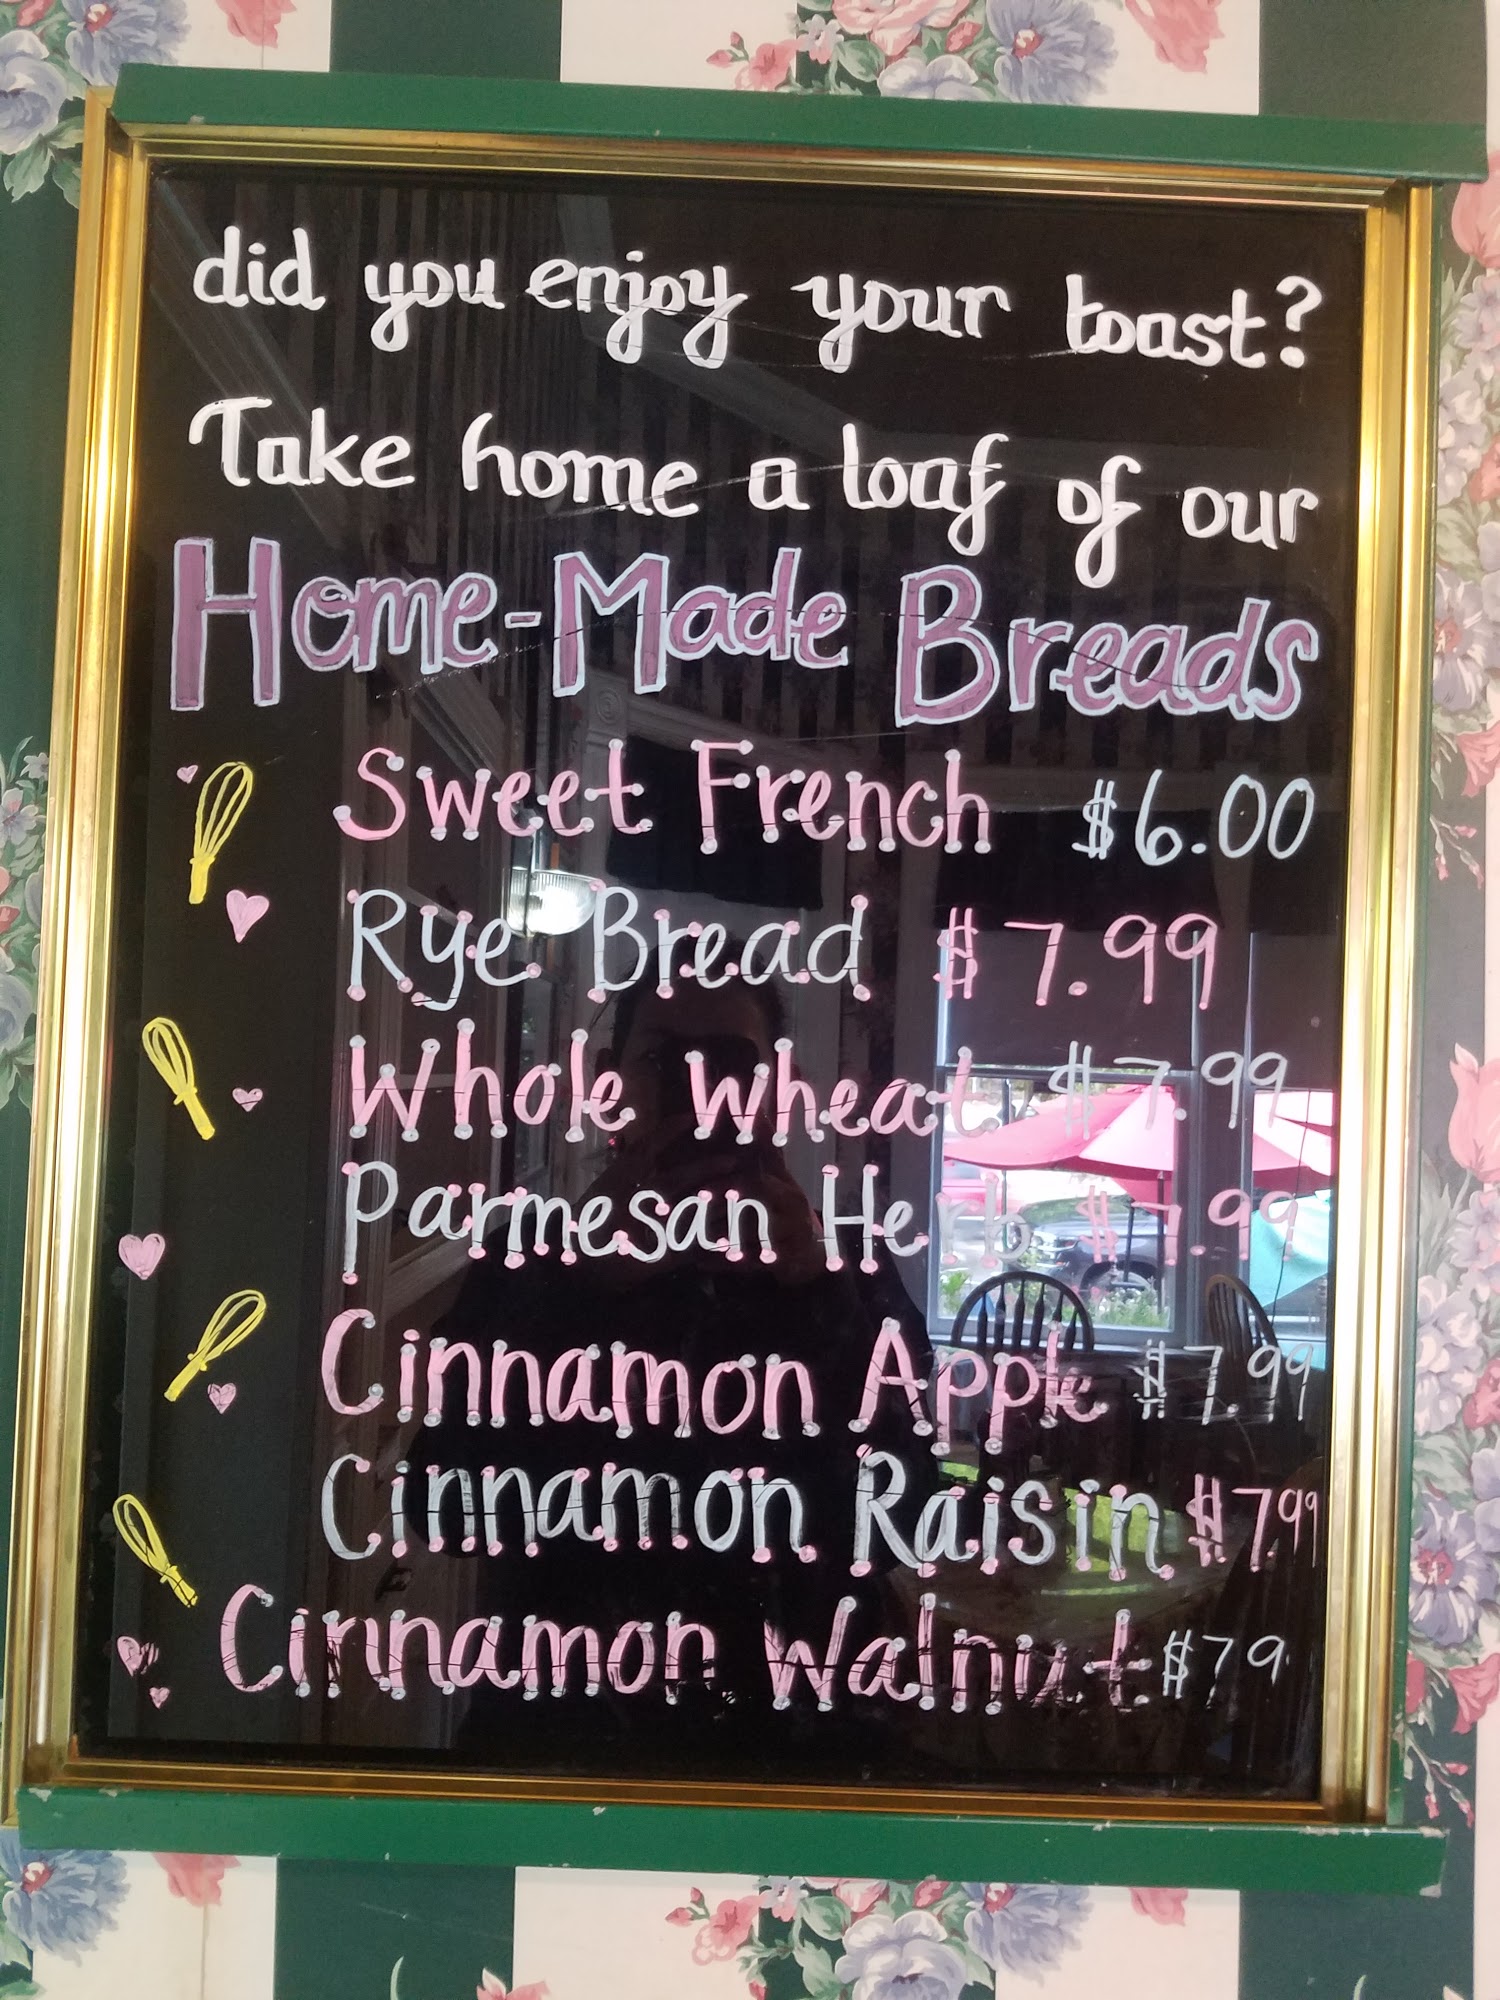 did you enjoy your toast?
Take home a loaf of our
Home-Made Breads
Sweet French $6.00
Rye Bread $7.99
Whole Wheat $7.99
Parmesan Herb $7.99
Cinnamon Apple $7.99
Cinnamon Raisin $7.99
Cinnamon Walnut $79